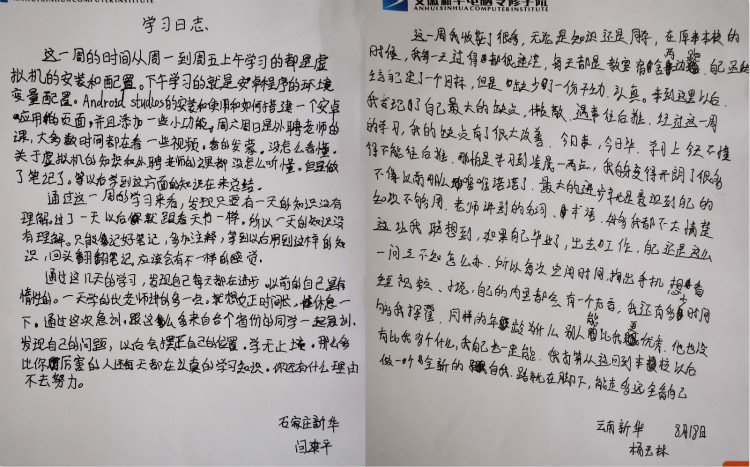 学习日志
这一周的时间从周一到周五上午学习的都是虚
拟机的安装和配置。下午学习的就是安卓程序的环境
变量配置。Android studios的安装和使用和如何搭建一个安卓
应用的页面,并且添加一些小功能。周六周日是外聘老师的
课,大多数时间都在看一些视频,看的发蒙。没怎么看懂。
关于虚拟机的知识和外聘老师的课都没怎么听懂。但是做
了笔记了。等以后学到这方面的知识在来总结。
通过这一周的学习来看,发现只要有一天的知识没有
理解。过了一天以后就跟看天书一样。所以一天的知识没
有理解。只能做记好笔记,多加注释,等到以后用到这样的知
识,回头翻翻笔记,应该会有不一样的感觉。
通过这几天的学习,发现自己每天都在进步。以前的自己是有
惰性的。一天学的比老师讲的多一点。就想
下。通过这次急训,跟这么多来自各个省份的同学一起急训,
发现自己的问题,以后会摆正自己的位置。学无止境。那么多
比你厉害的人还每天都在认真的学习知识。你还有什么理由
不去努力。
石家庄新华
安徽新华电脑专修学院
ANHUIXINHUACOMPUTERINSTITUTE
这一周我收获了很多,无论是知识还是同学,在原来本校的
时候,我每一天过得都很迷茫,每天都是教室宿舍两边跑,自己还
给自己定了一个目标,但是缺少了一份子努力、认真。来到这里以后
我发现了自己最大的缺点,懒散、遇事往后推。经过这一周
的学习,我的缺点有了很大改善。今日事,今日毕,学习上今天不懂
得不能往后推。哪怕是学习到凌晨一两点,我的变得开朗了很多
不像以前那么唯唯诺诺了。最大的进步就是意识到自己的
知识不够用。老师讲到的名词、术语,好多我都不太清楚
这让我联想到,如果自己毕业了,出去工作,自己还是这么
一问三不知怎么办。所以每次空闲时间,掏出手机想去看
短视频、小说,自己的内心都会有一个声音,我还有多少时间
的我挥霍。同样的年龄为什么别人能比我更优秀。他也没
有比我多个什么,我自己也一定能。我有信从这回到本校以后
做一个全新的自我,路就在脚下,能走多远全看自己
云南新华 8月18日
杨云林